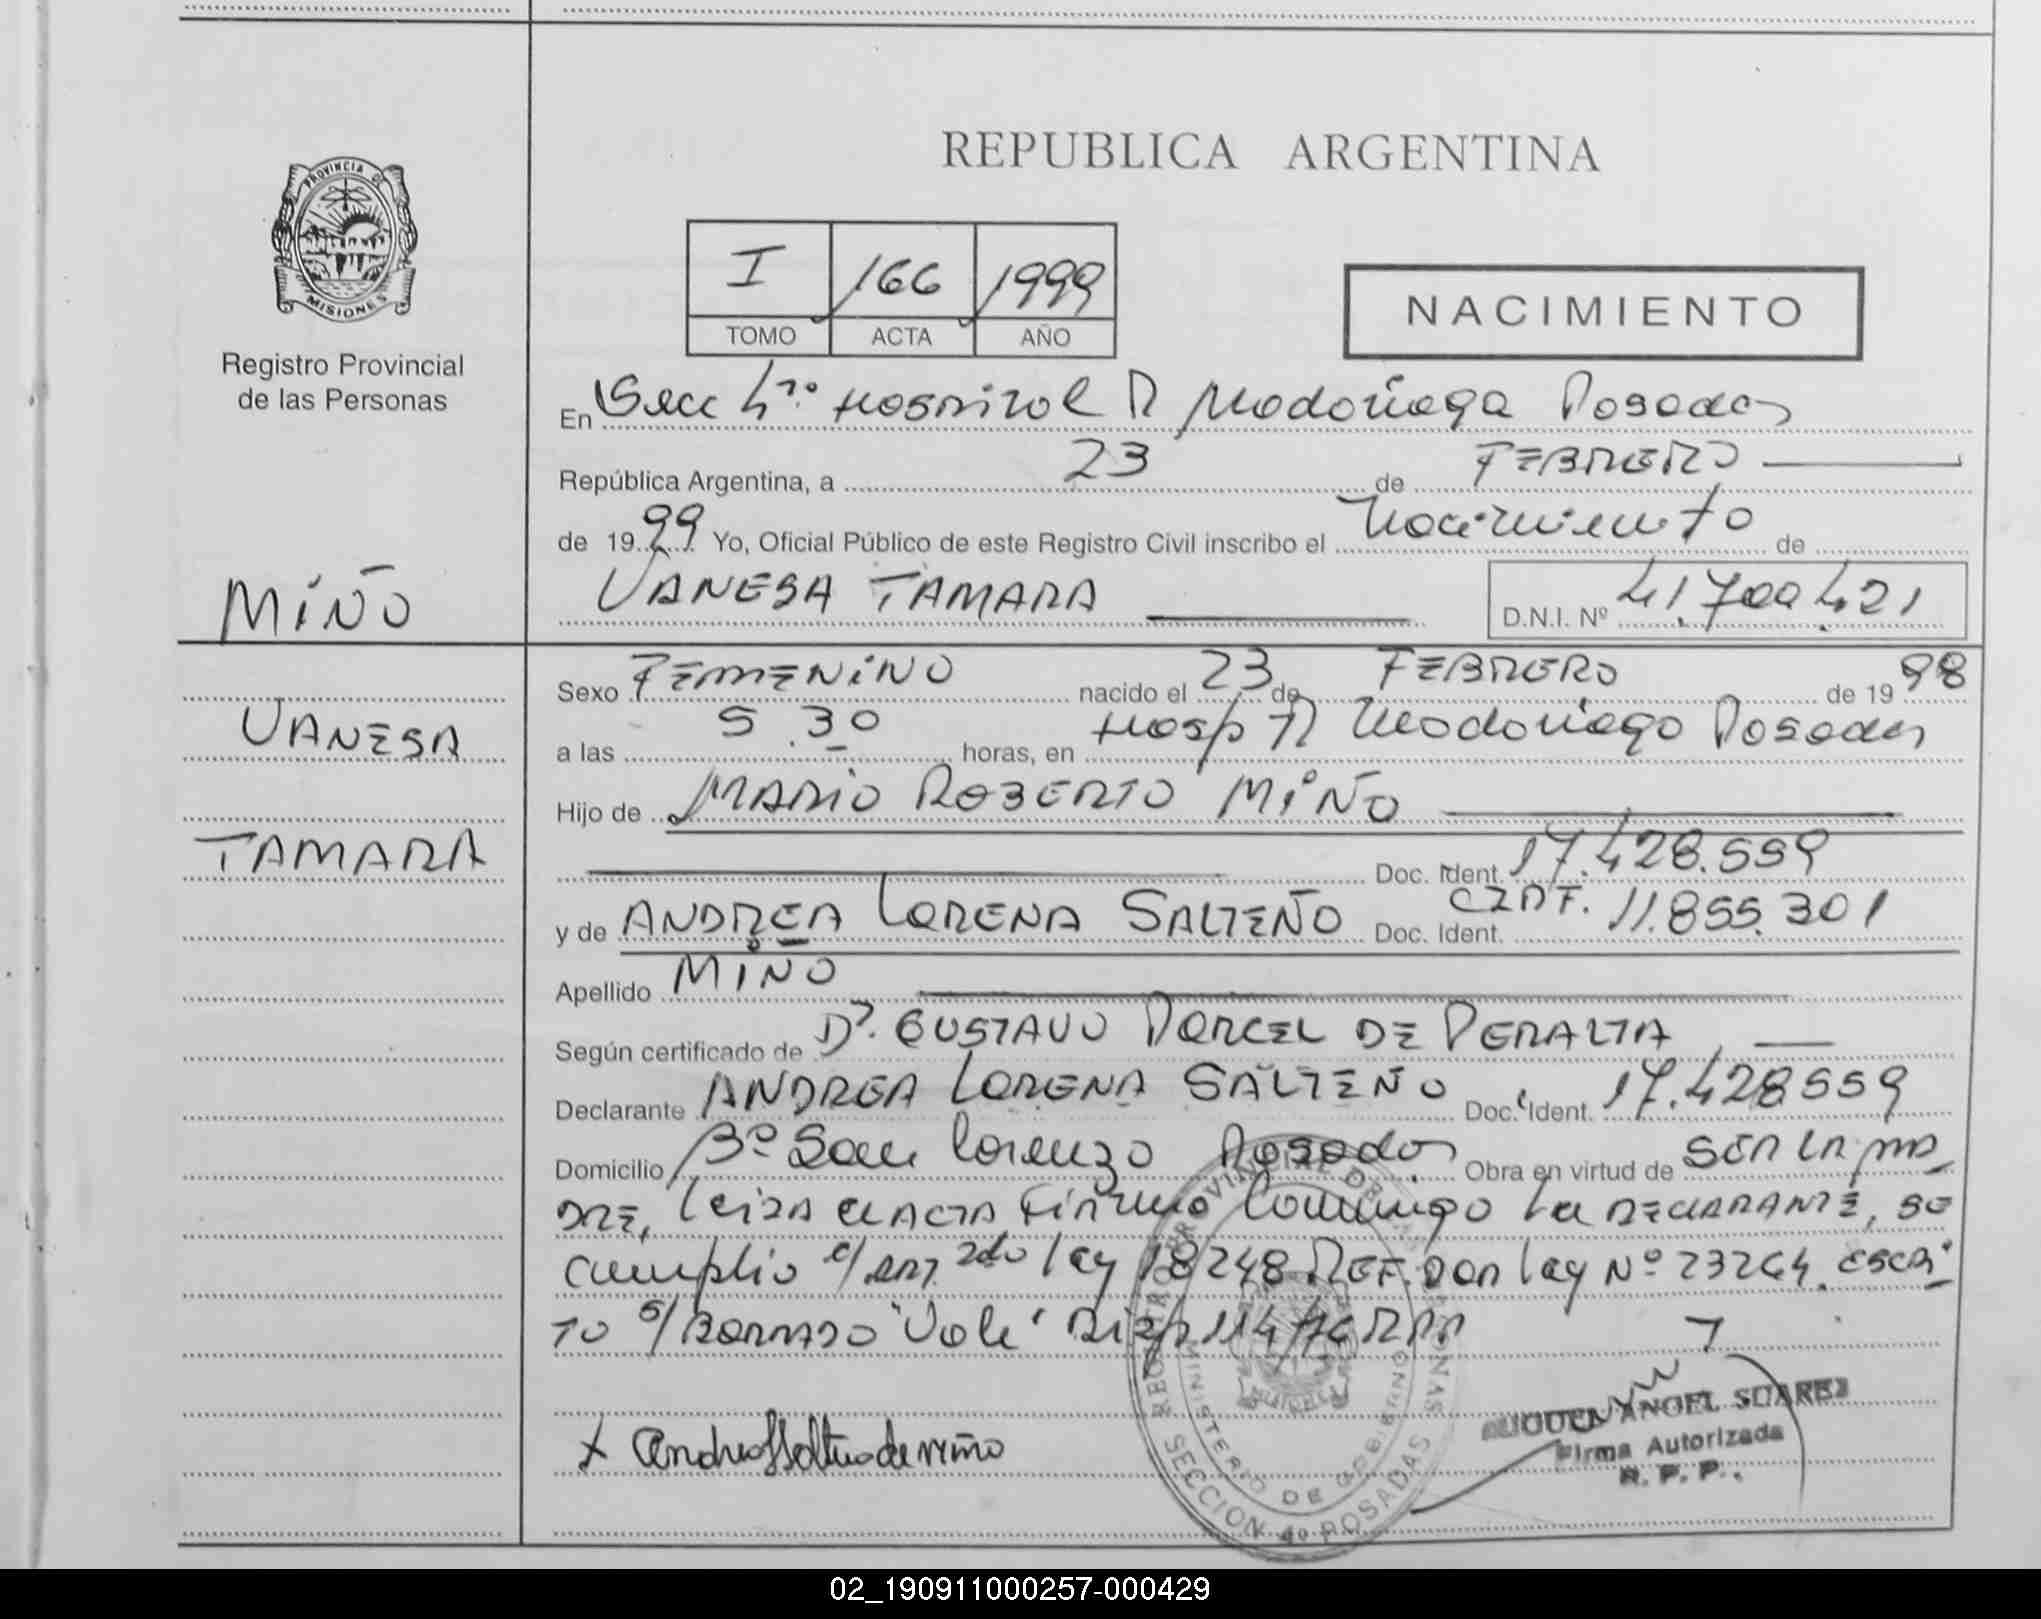 REPUBLICA ARGENTINA
PROVINCIA DE
MISIONES
Registro Provincial
de las Personas
I 166 1999
TOMO ACTA AÑO
NACIMIENTO
En Secc 4ta. Hospital R Madariaga Posadas
República Argentina, a 23 de FEBRERO
de 1999 Yo, Oficial Público de este Registro Civil inscribo el Nacimiento de
VANESA TAMARA D.N.I. Nº 41.700.421
MIÑO
VANESA
TAMARA
Sexo FEMENINO nacido el 23 de FEBRERO de 1998
a las 5.30 horas, en Hosp R Madariaga Posadas
Hijo de MARIO ROBERTO MIÑO
Doc. Ident. 17.428.559
y de ANDREA LORENA SALTEÑO Doc. Ident. CZDF. 11.855.301
Apellido MIÑO
Según certificado de Dr. GUSTAVO PORCEL DE PERALTA
Declarante ANDREA LORENA SALTEÑO Doc. Ident. 17.428559
Domicilio Bº San Lorenzo Posadas Obra en virtud de SER LA MA
DRE, Leida el ACTA Firmo Conmigo La DECLARANTE, se
cumplio c/ART. 2do ley 18248 REF. POR ley Nº 23264. ESCRI
TO s/BORRADO "Vale" Disp 114/76 RPP
Andrea Salteño de Miño
REGISTRO PROVINCIAL DE LAS PERSONAS
MINISTERIO DE GOBIERNO
SECCION 4º POSADAS
ANGEL SUAREZ
Firma Autorizada
R. P. P.
02_190911000257-000429